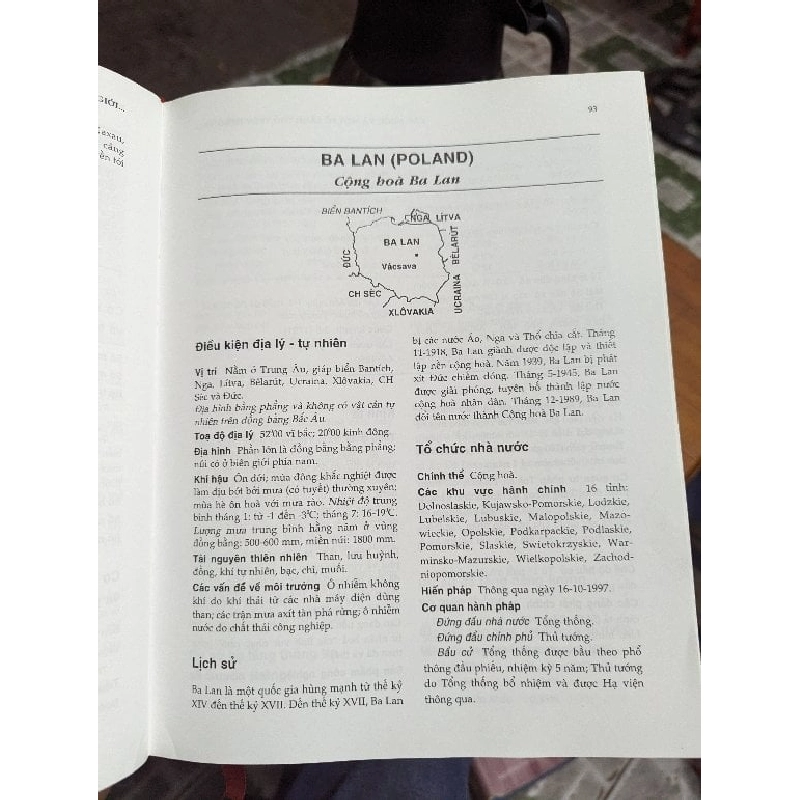 GIỚI...
cảng
93
BA LAN (POLAND)
Cộng hoà Ba Lan
BIỂN BANTÍCH
NGA
LÍTVA
BA LAN
Vácsava
ĐỨC
BÊLARÚT
UCRAINA
CH SÉC
XLÔVAKIA
Điều kiện địa lý - tự nhiên
Vị trí Nằm ở Trung Âu, giáp biển Bantích,
Nga, Lítva, Bêlarút, Ucraina, Xlôvakia, CH
Séc và Đức.
Địa hình bằng phẳng và không có vật cản tự
nhiên trên đồng bằng Bắc Âu.
Toạ độ địa lý 52°00 vĩ bắc; 20°00 kinh đông.
Địa hình Phần lớn là đồng bằng bằng phẳng;
núi có ở biên giới phía nam.
Khí hậu Ôn đới; mùa đông khắc nghiệt được
làm dịu bớt bởi mưa (có tuyết) thường xuyên;
mùa hè ôn hoà với mưa rào. Nhiệt độ trung
bình tháng 1: từ -1 đến -3°C; tháng 7: 16-19°C.
Lượng mưa trung bình hằng năm ở vùng
đồng bằng: 500-600 mm, miền núi: 1800 mm.
Tài nguyên thiên nhiên Than, lưu huỳnh,
đồng, khí tự nhiên, bạc, chì, muối.
Các vấn đề về môi trường Ô nhiễm không
khí do khí thải từ các nhà máy điện dùng
than; các trận mưa axít tàn phá rừng; ô nhiễm
nước do chất thải công nghiệp.
Lịch sử
Ba Lan là một quốc gia hùng mạnh từ thế kỷ
XIV đến thế kỷ XVII. Đến thế kỷ XVII, Ba Lan
bị các nước Áo, Nga và Thổ chia cắt. Tháng
11-1918, Ba Lan giành được độc lập và thiết
lập nền cộng hoà. Năm 1939, Ba Lan bị phát
xít Đức chiếm đóng. Tháng 5-1945, Ba Lan
được giải phóng, tuyên bố thành lập nước
cộng hoà nhân dân. Tháng 12-1989, Ba Lan
đổi tên nước thành Cộng hoà Ba Lan.
Tổ chức nhà nước
Chính thể Cộng hoà.
Các khu vực hành chính 16 tỉnh:
Dolnoslaskie, Kujawsko-Pomorskie, Lodzkie,
Lubelskie, Lubuskie, Malopolskie, Mazo-
wieckie, Opolskie, Podkarpackie, Podlaskie,
Pomorskie, Slaskie, Swietokrzyskie, War-
minsko-Mazurskie, Wielkopolskie, Zachod-
niopomorskie.
Hiến pháp Thông qua ngày 16-10-1997.
Cơ quan hành pháp
Đứng đầu nhà nước Tổng thống.
Đứng đầu chính phủ Thủ tướng.
Bầu cử Tổng thống được bầu theo phổ
thông đầu phiếu, nhiệm kỳ 5 năm; Thủ tướng
do Tổng thống bổ nhiệm và được Hạ viện
thông qua.